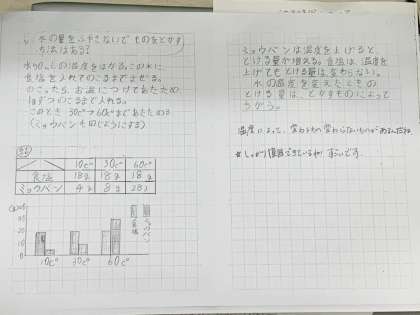 水の量をふやさないでものをとかす
方法はある?
水50mLの温度をはかる。この水に
食塩を入れてのこるまでまぜる。
のこったら、お湯につけてあたため
1gずつのこるまで入れる。
このとき 30c°→60c°まであたためる
(ミョウバンも同じようにする)
10c° 30c° 60c°
食塩 18g 18g 18g
ミョウバン 4g 8g 28g
40
30
20
10
0
食塩
ミョウバン
10c° 30c° 60c°
ミョウバンは温度を上げると、
とける量が増える。食塩は、温度を
上げてもとける量は変わらない。
水の温度を変えたときの
とける量は、とかすものによって
ちがう。
温度によって、変わるもの変わらないものがあるんだね
しっかり復習できているね! すごいです。